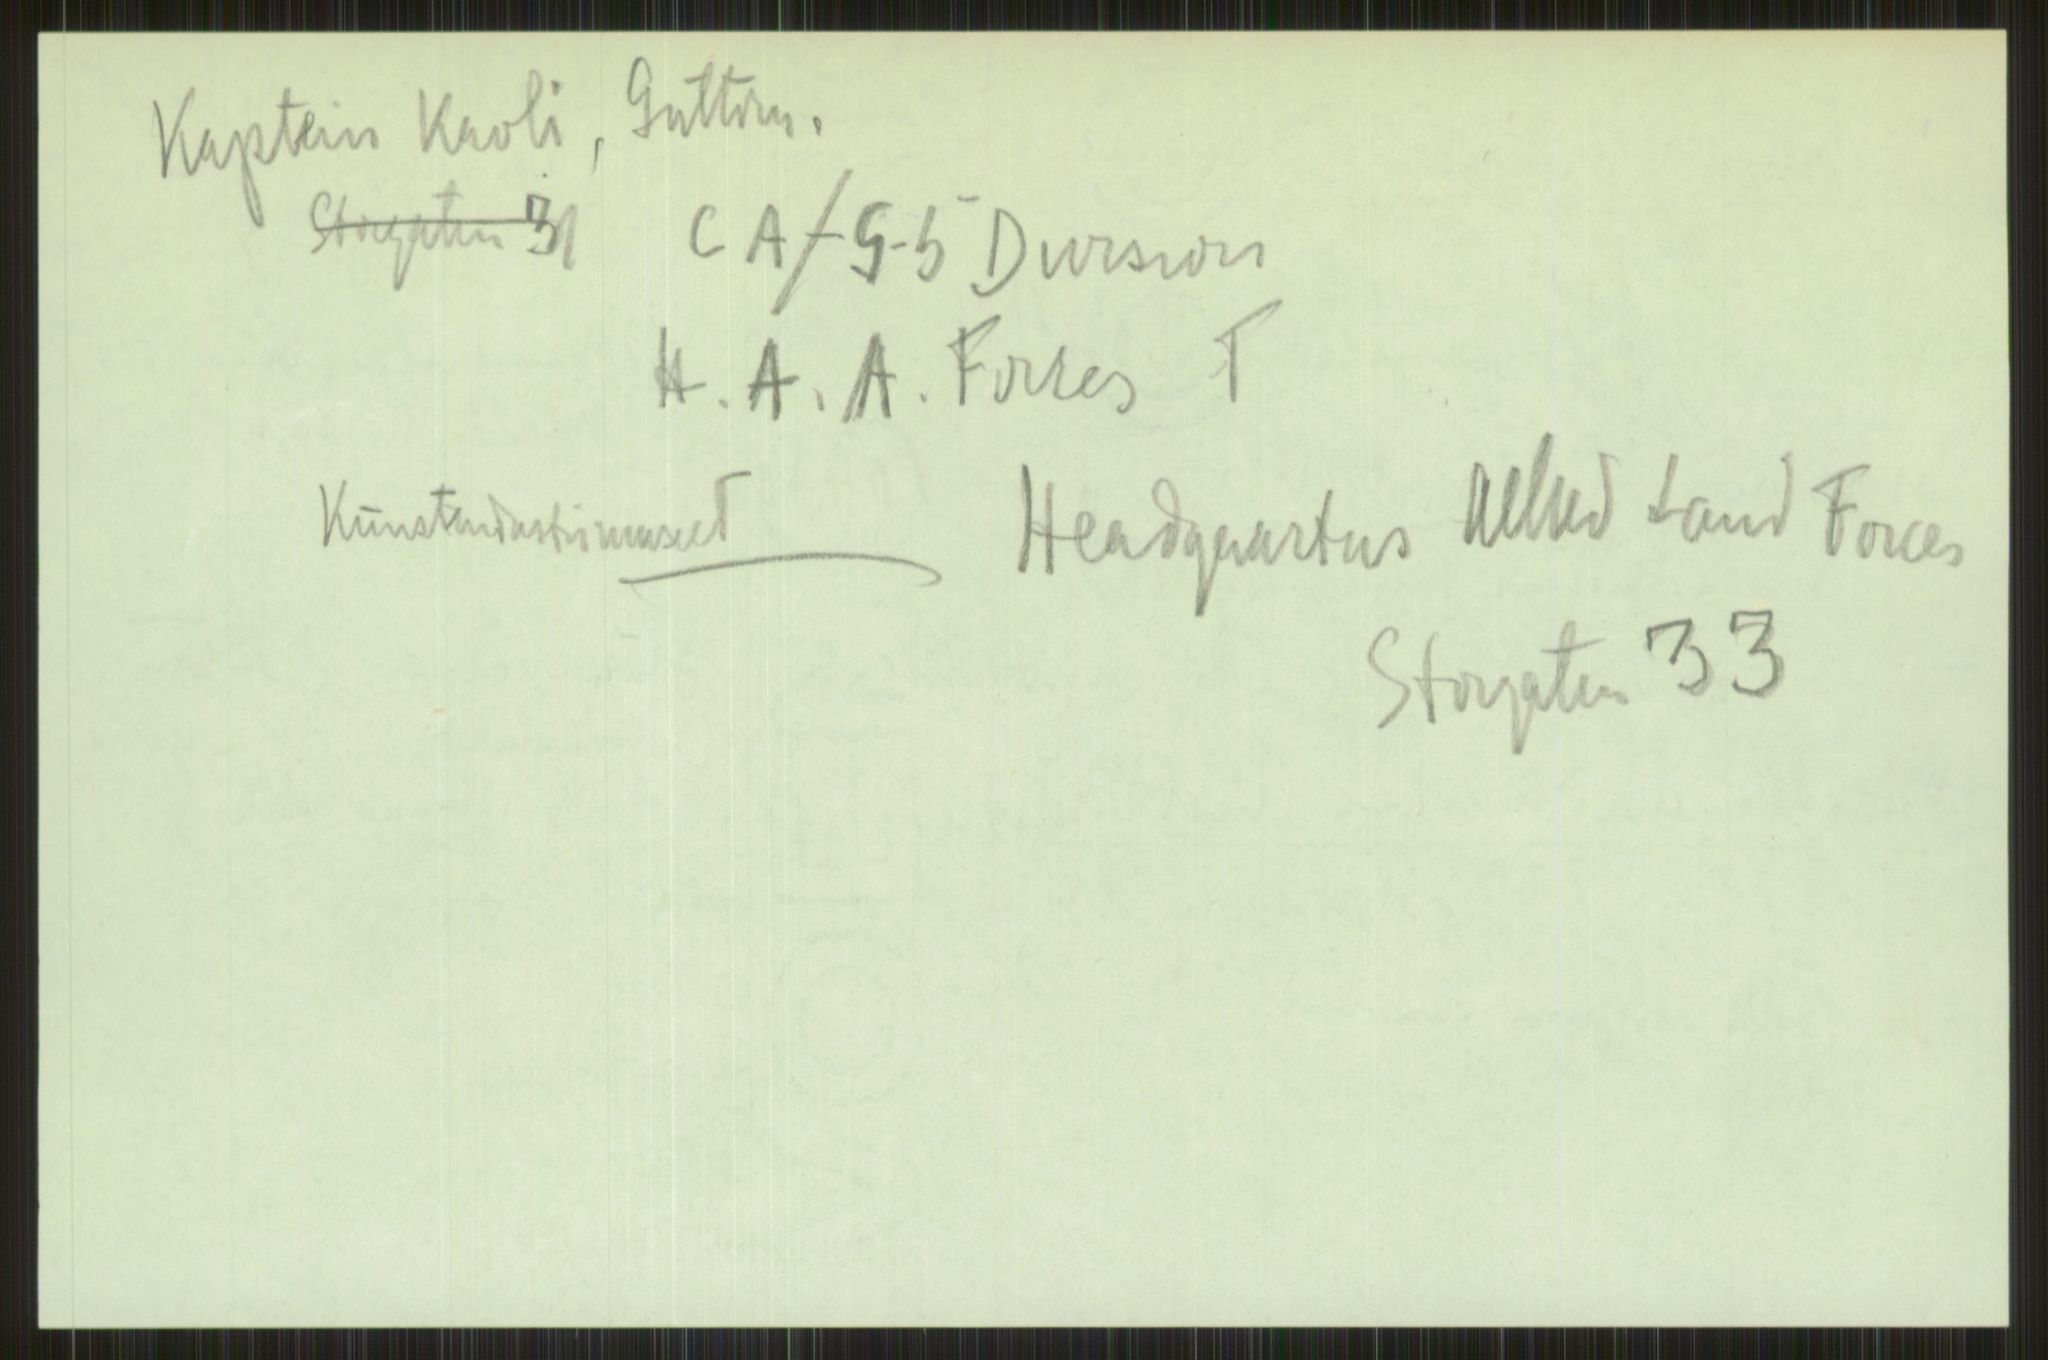 Kaptein Kavli, Guttorm.
Storgaten 31 CA/G-5 Division
H. A. A. Forces T
Kunstindustrimuseet Headquarters Allied Land Forces
Storgaten 33